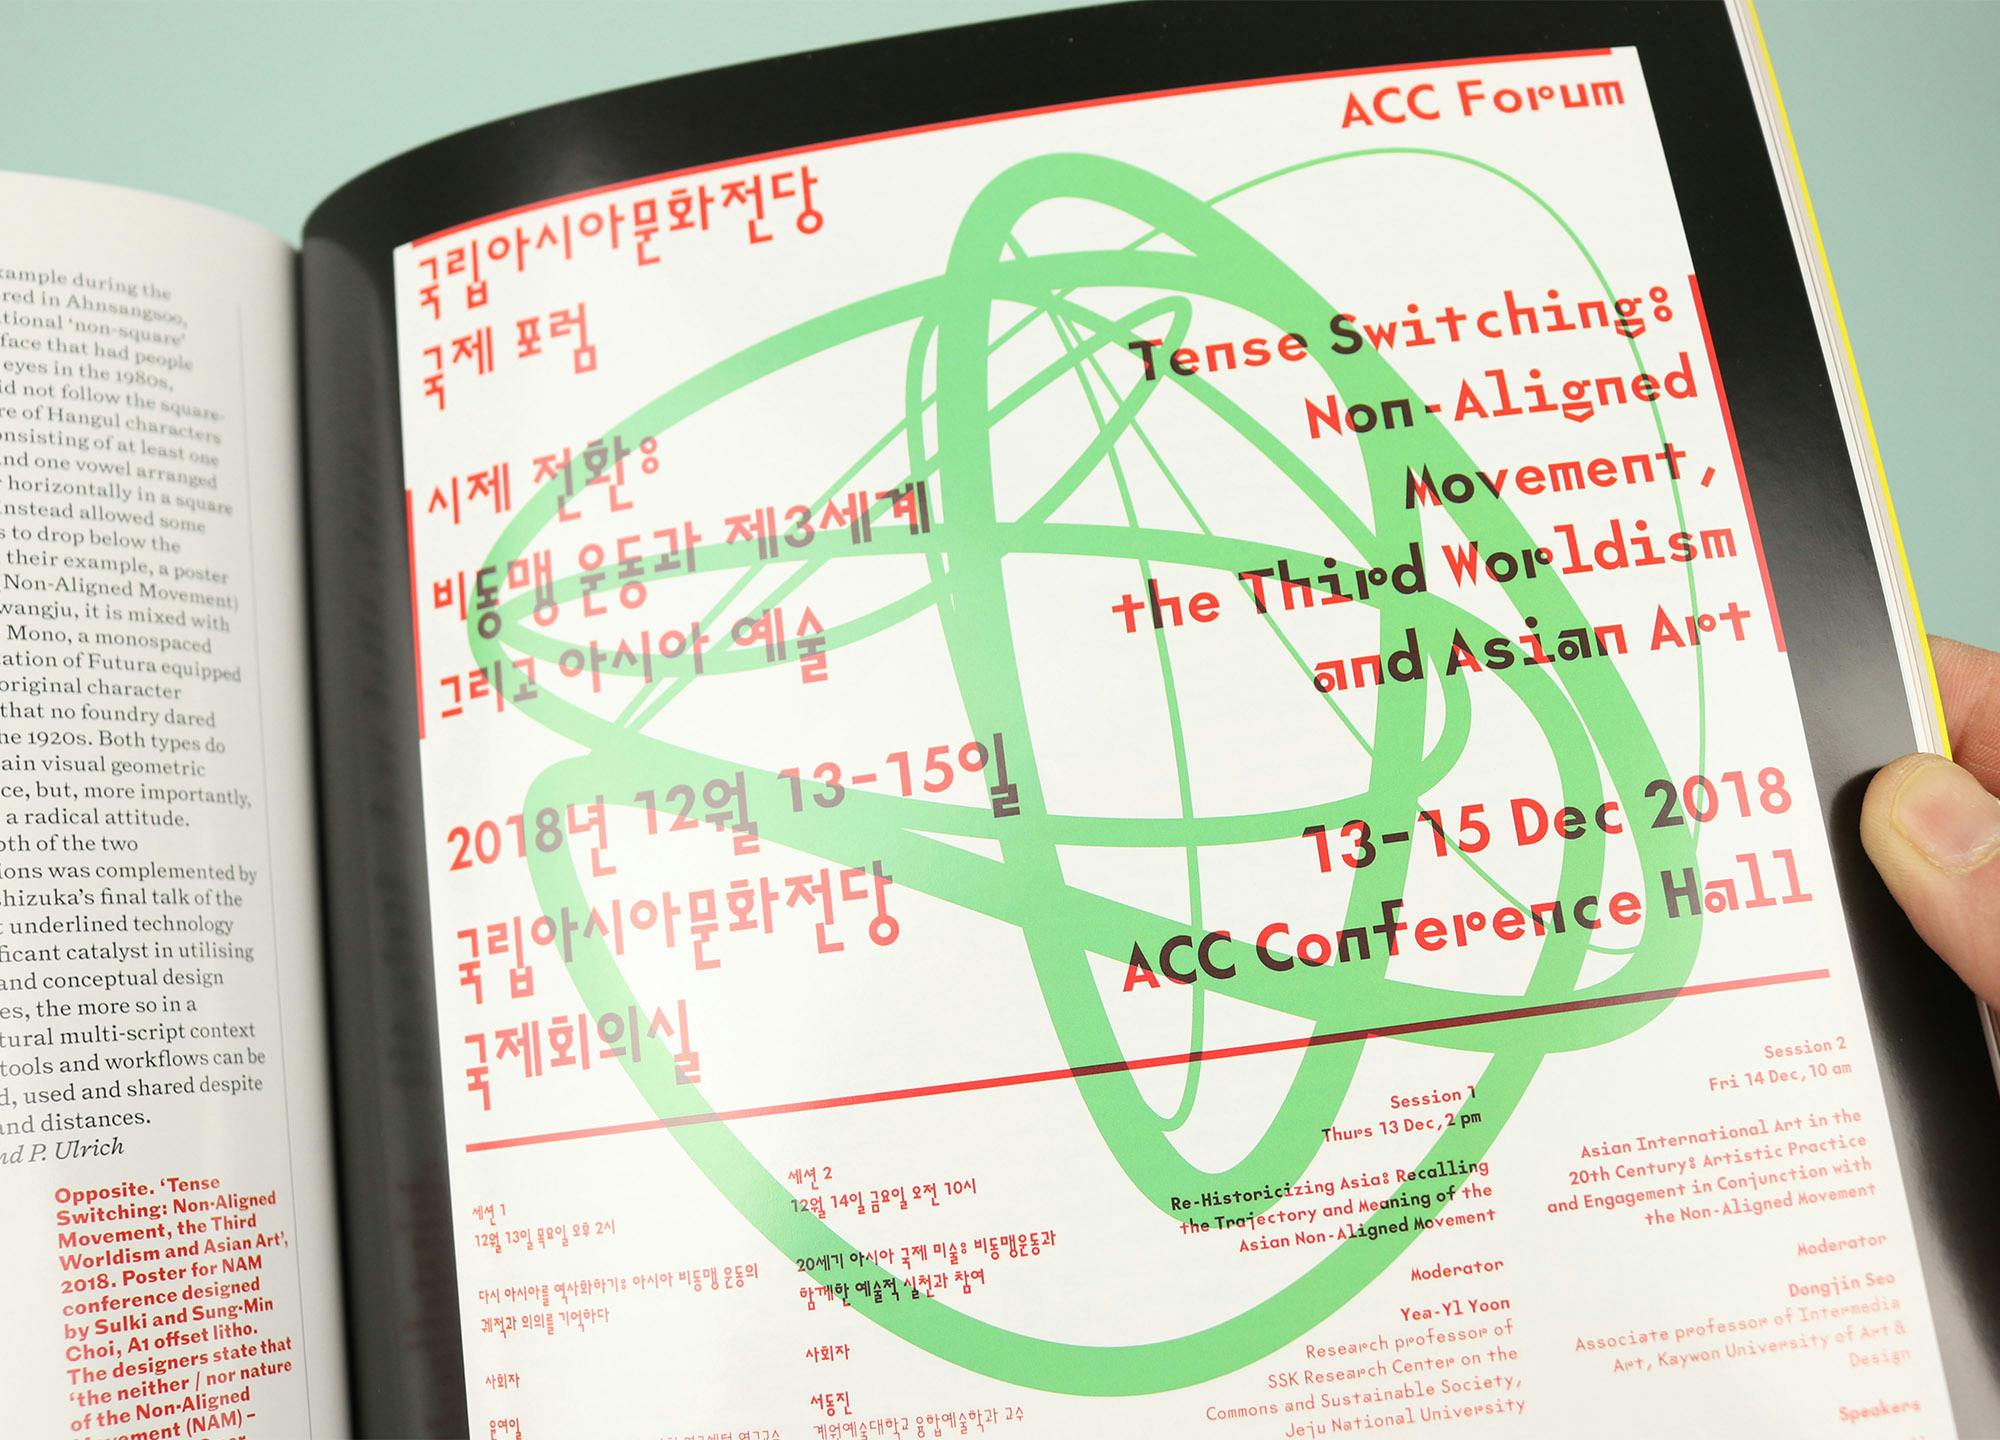 ample during the
red in Ahnsangsoo,
tional ‘non-square’
face that had people
eyes in the 1980s,
id not follow the square-
re of Hangul characters
onsisting of at least one
nd one vowel arranged
r horizontally in a square
nstead allowed some
s to drop below the
their example, a poster
Non-Aligned Movement)
wangju, it is mixed with
Mono, a monospaced
ation of Futura equipped
original character
that no foundry dared
ne 1920s. Both types do
ain visual geometric
ce, but, more importantly,
a radical attitude.
oth of the two
ions was complemented by
shizuka’s final talk of the
t underlined technology
ficant catalyst in utilising
and conceptual design
es, the more so in a
tural multi-script context
tools and workflows can be
d, used and shared despite
and distances.
nd P. Ulrich
Opposite. ‘Tense
Switching: Non-Aligned
Movement, the Third
Worldism and Asian Art’,
2018. Poster for NAM
conference designed
by Sulki and Sung-Min
Choi, A1 offset litho.
The designers state that
‘the neither / nor nature
of the Non-Aligned
Movement (NAM) –
ACC Forum
국립아시아문화전당
국제 포럼
시제 전환:
비동맹 운동과 제3세계
그리고 아시아 예술
2018년 12월 13-15일
국립아시아문화전당
국제회의실
Tense Switching:
Non-Aligned
Movement,
the Third Worldism
and Asian Art
13-15 Dec 2018
ACC Conference Hall
세션 1
12월 13일 목요일 오후 2시
다시 아시아를 역사화하기: 아시아 비동맹 운동의
궤적과 의의를 기억하다
사회자
윤여일
세션 2
12월 14일 금요일 오전 10시
20세기 아시아 국제 미술: 비동맹운동과
함께한 예술적 실천과 참여
사회자
서동진
계원예술대학교 융합예술학과 교수
Session 1
Thurs 13 Dec, 2 pm
Re-Historicizing Asia: Recalling
the Trajectory and Meaning of the
Asian Non-Aligned Movement
Moderator
Yea-Yl Yoon
Research professor of
SSK Research Center on the
Commons and Sustainable Society,
Jeju National University
Session 2
Fri 14 Dec, 10 am
Asian International Art in the
20th Century: Artistic Practice
and Engagement in Conjunction with
the Non-Aligned Movement
Moderator
Dongjin Seo
Associate professor of Intermedia
Art, Kaywon University of Art &
Design
Speakers